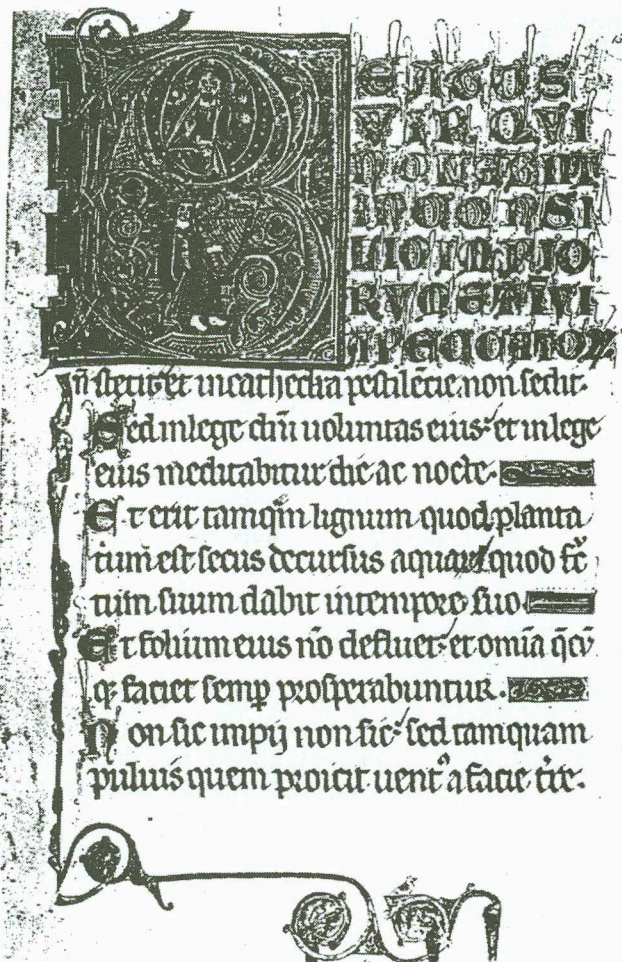 BEATUS
VIR QVI
NON ABIIT
IN CONSI
LIO INPIO
RVM & IN VI
A PECCATOR
n̄ stetit et in cathedra pestilētie non sedit.
Sed in lege dn̄i uoluntas eius et in lege
eius meditabitur die ac nocte.
Et erit tamqm̄ lignum quod planta
tum est secus decursus aquarꝝ quod fc̄
tum suum dabit in tempore suo
Et folium eius nō defluet et om̄ia q̄cū
qꝫ faciet semꝑ prosperabuntur.
Non sic impij non sic sed tamquam
puluis quem proicit uentꝰ a facie tr̄e.